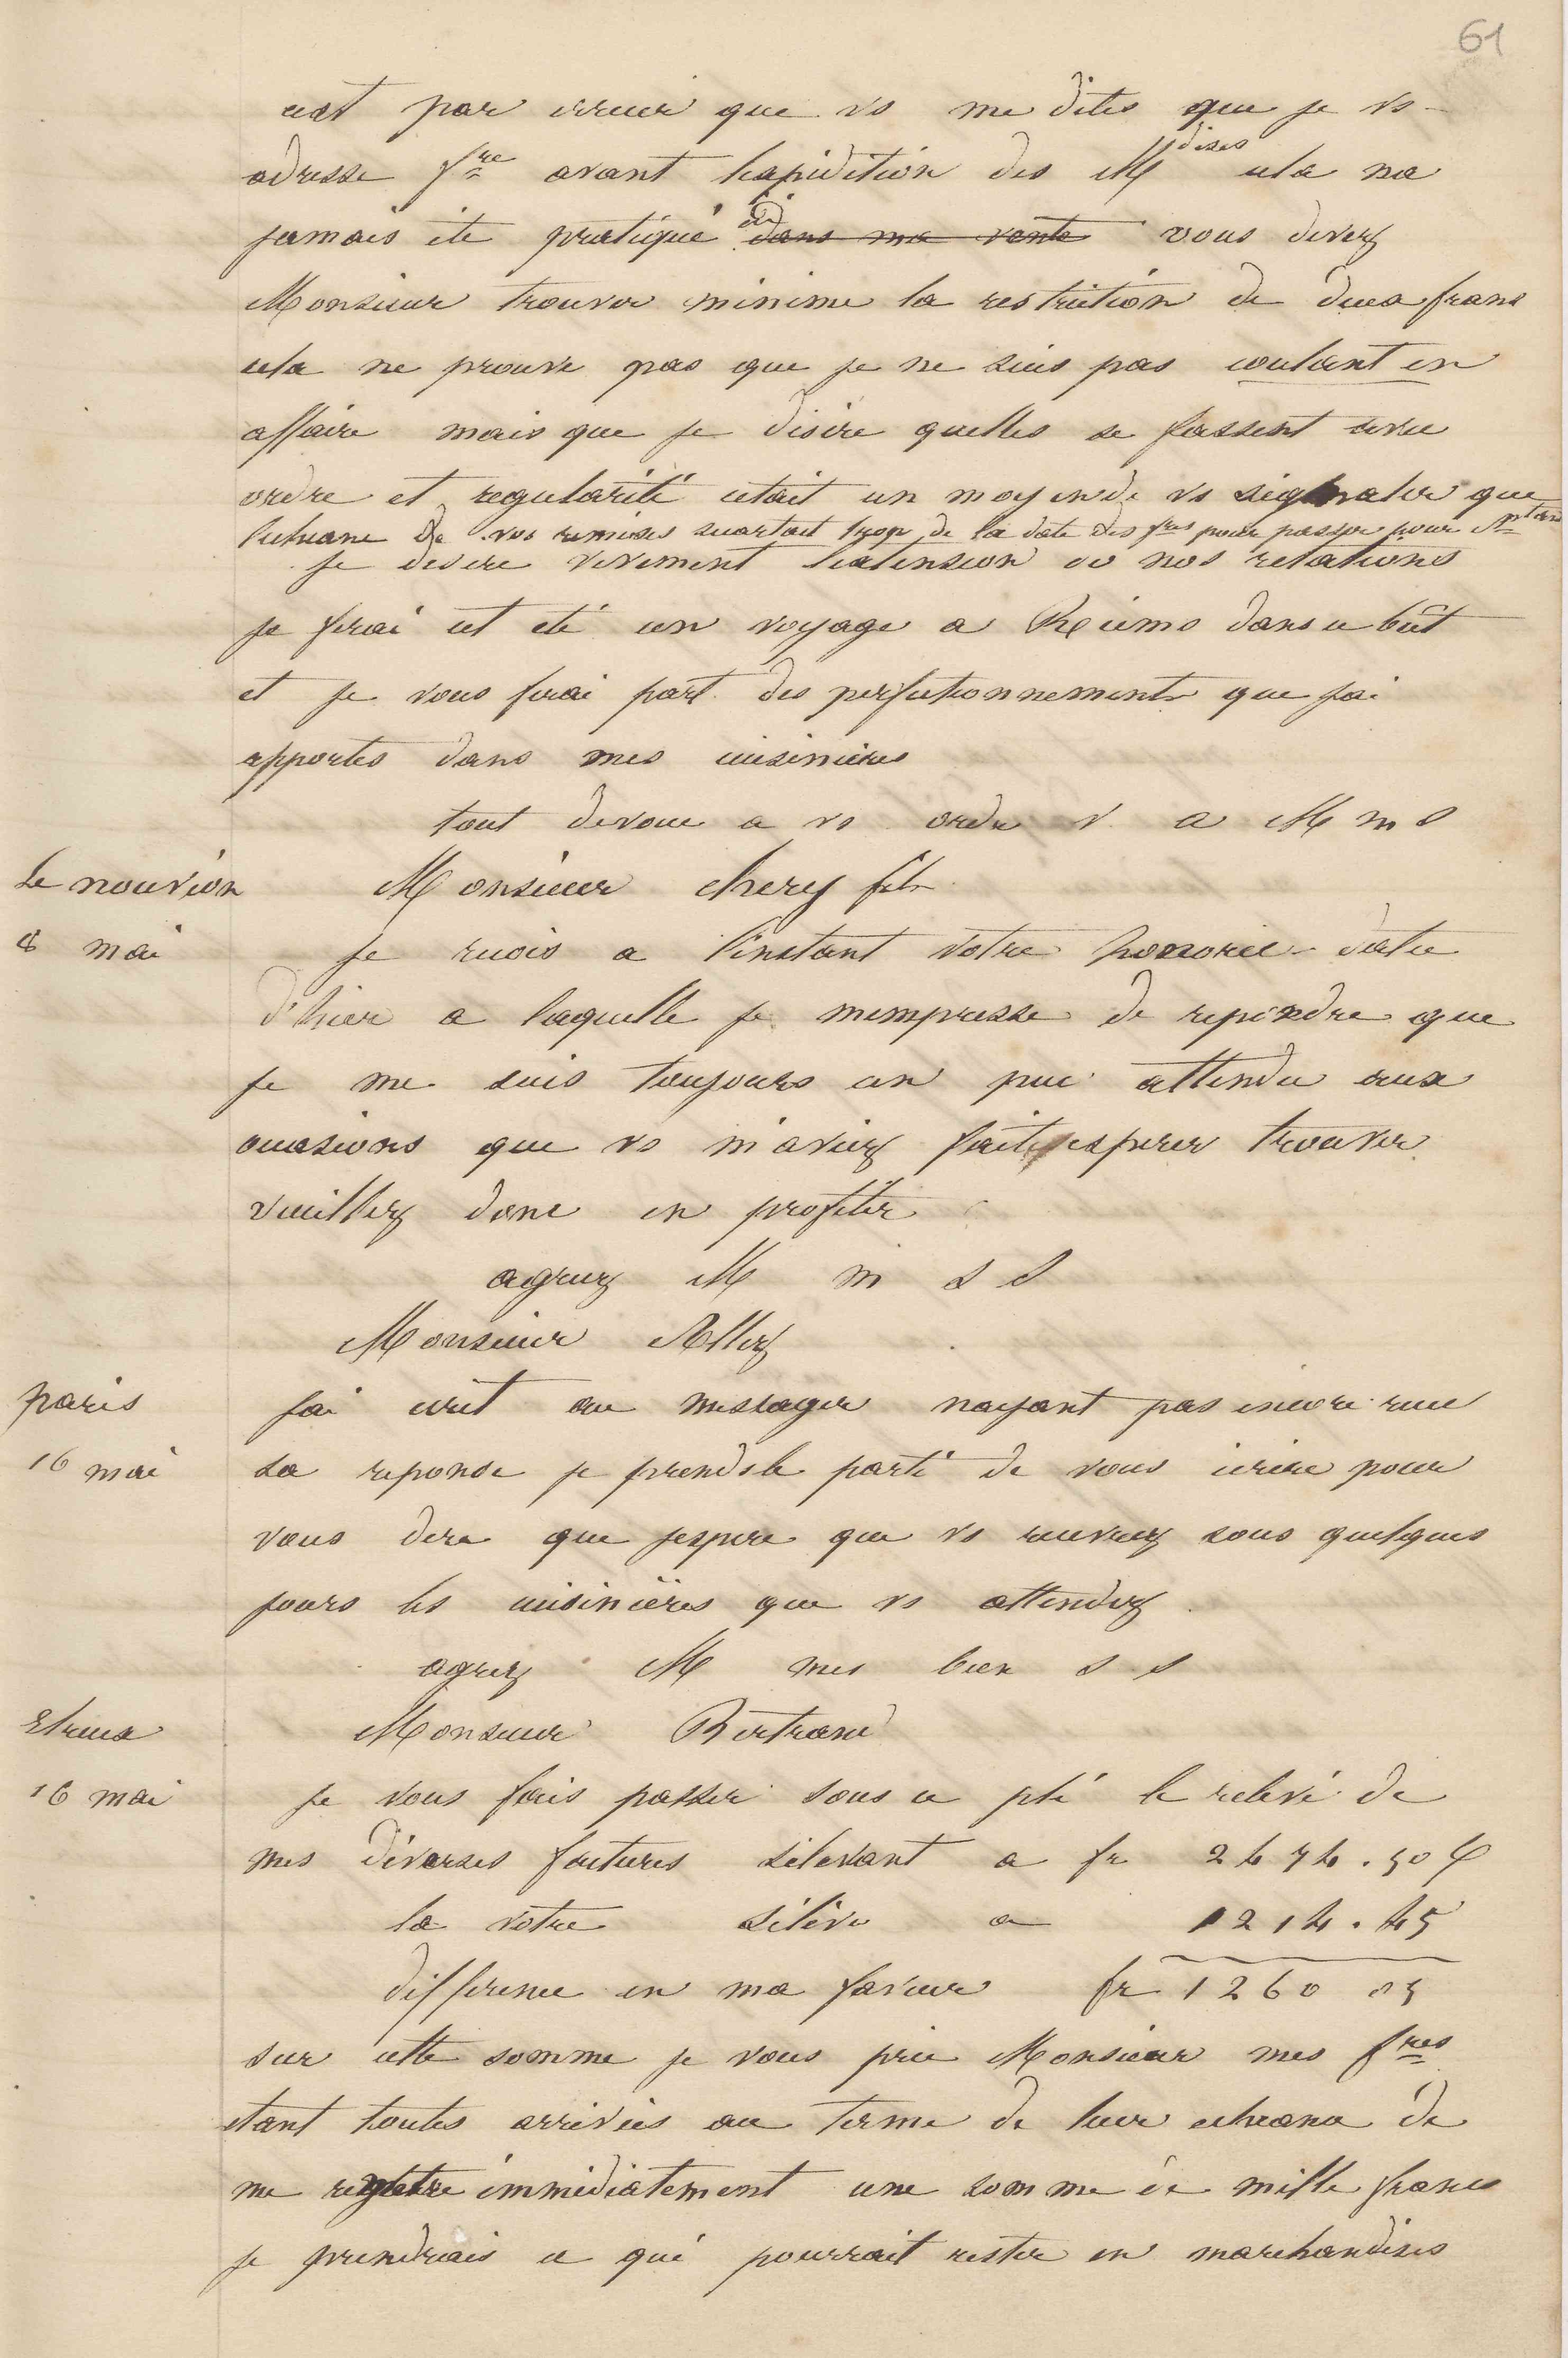 61
cest par erreur que vs me dites que je vs
adresse fre avant lexpidition des Mdises cela na
jamais ete pratiqué ici dans ma vente vous devez
Monsieur trouver minime la restriction de deux francs
cela ne prouve pas que je ne suis pas coulant en
affaire mais que je désire quelles se fassent avec
ordre et regularité cetait un moyen de vs signaler que
lecheance de vos remises secartait trop de la date des fres pour passer pour
je desire vivement lextension de nos relations
je ferai cet été un voyage a Reims dans ce bût
et je vous ferai part des perfectionnements que jai
apportes dans mes cuisinières
tout devoué a vs ordre v a M m s
Le nouvion
Monsieur chery fils
8 mai
Je reçois a l'instant votre honorée datée
d'hier a laquelle je mempresse de repondre que
je me suis toujours un peu attendu aux
occasions que vs m'aviez fait esperer trouver
veuillez donc en profiter
agreez M m s s
Monsieur Allez
paris
jai écrit au messager nayant pas encore recu
16 mai
sa reponse je prends le parti de vous écrire pour
vous dire que jespere que vs recevrez sous quelques
jours les cuisinières que vs attendez
agreez M mes bien s s
Etreux
Monsieur Bertrand
16 mai
je vous fais passer sous ce pli le relevé de
mes diverses factures sélevant a fr 2474.50
la votre sélève a 1214.45
difference en ma faveur fr 1260 05
sur cette somme je vous prie Monsieur mes fres
etant toutes arrivées au terme de leur echeance de
me remettre immédiatement une somme de mille francs
je prendrais ce qui pourrait rester en marchandises